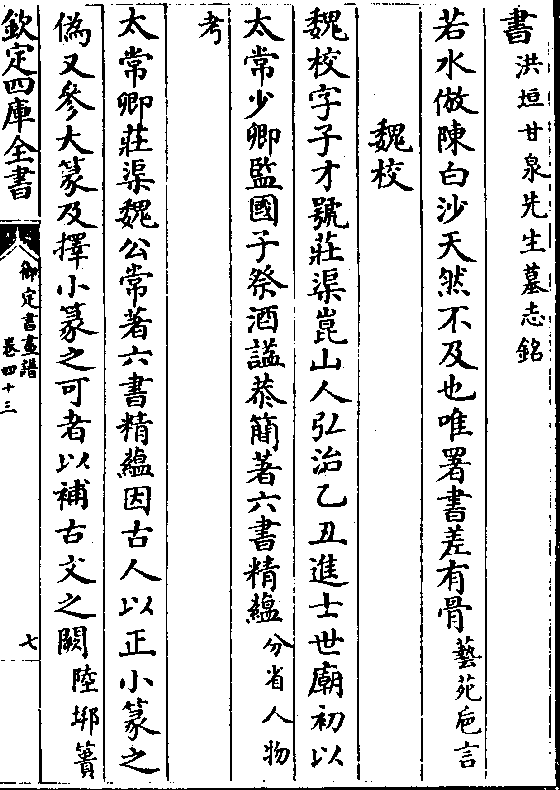 書洪垣甘泉先生墓志銘
若水倣陳白沙天然不及也唯署書差有骨藝苑巵言
魏校
魏校字子才號莊渠崑山人弘治乙丑進士世廟初以
太常少卿監國子祭酒謚恭簡著六書精蘊分省人物
考
太常卿莊渠魏公常著六書精蘊因古人以正小篆之
偽又參大篆及擇小篆之可者以補古文之闕陸𨛦篔
欽定四庫全書
御定書畫譜
卷四十三
七